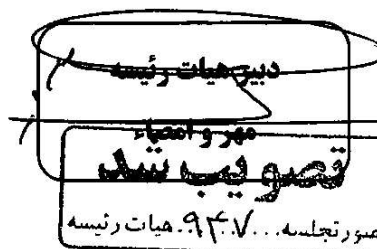 دبیر هیات رئیسه
مهر و امضاء
تصویب شد
صورتجلسه ...۹۴۷... هیات رئیسه